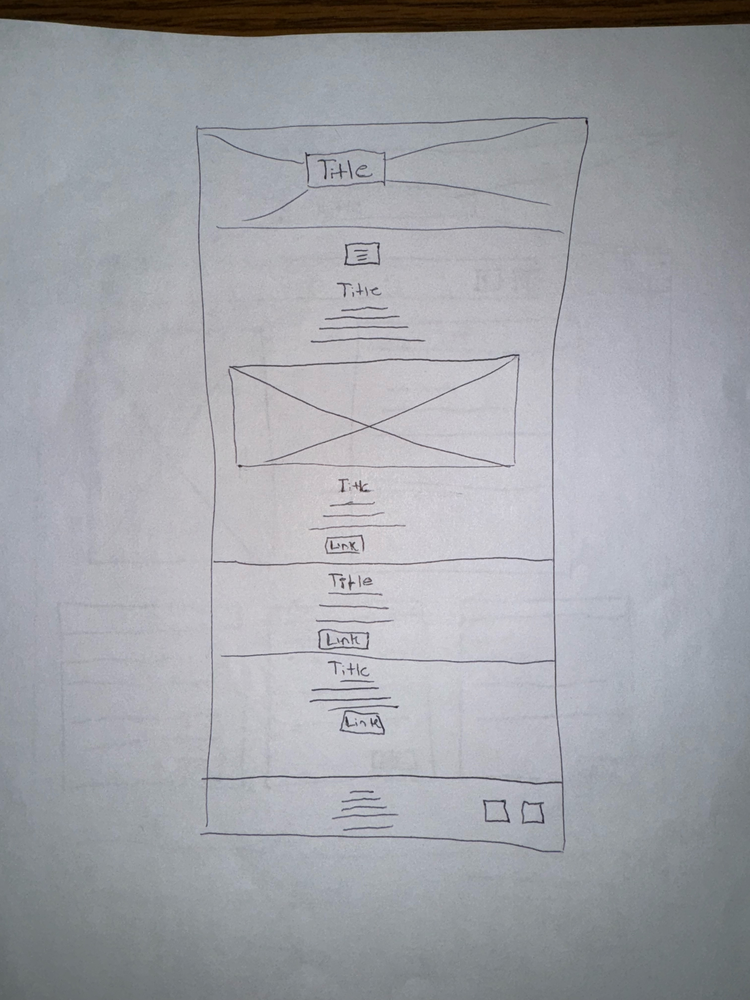 Title
Title
Title
Link
Title
Link
Title
Link